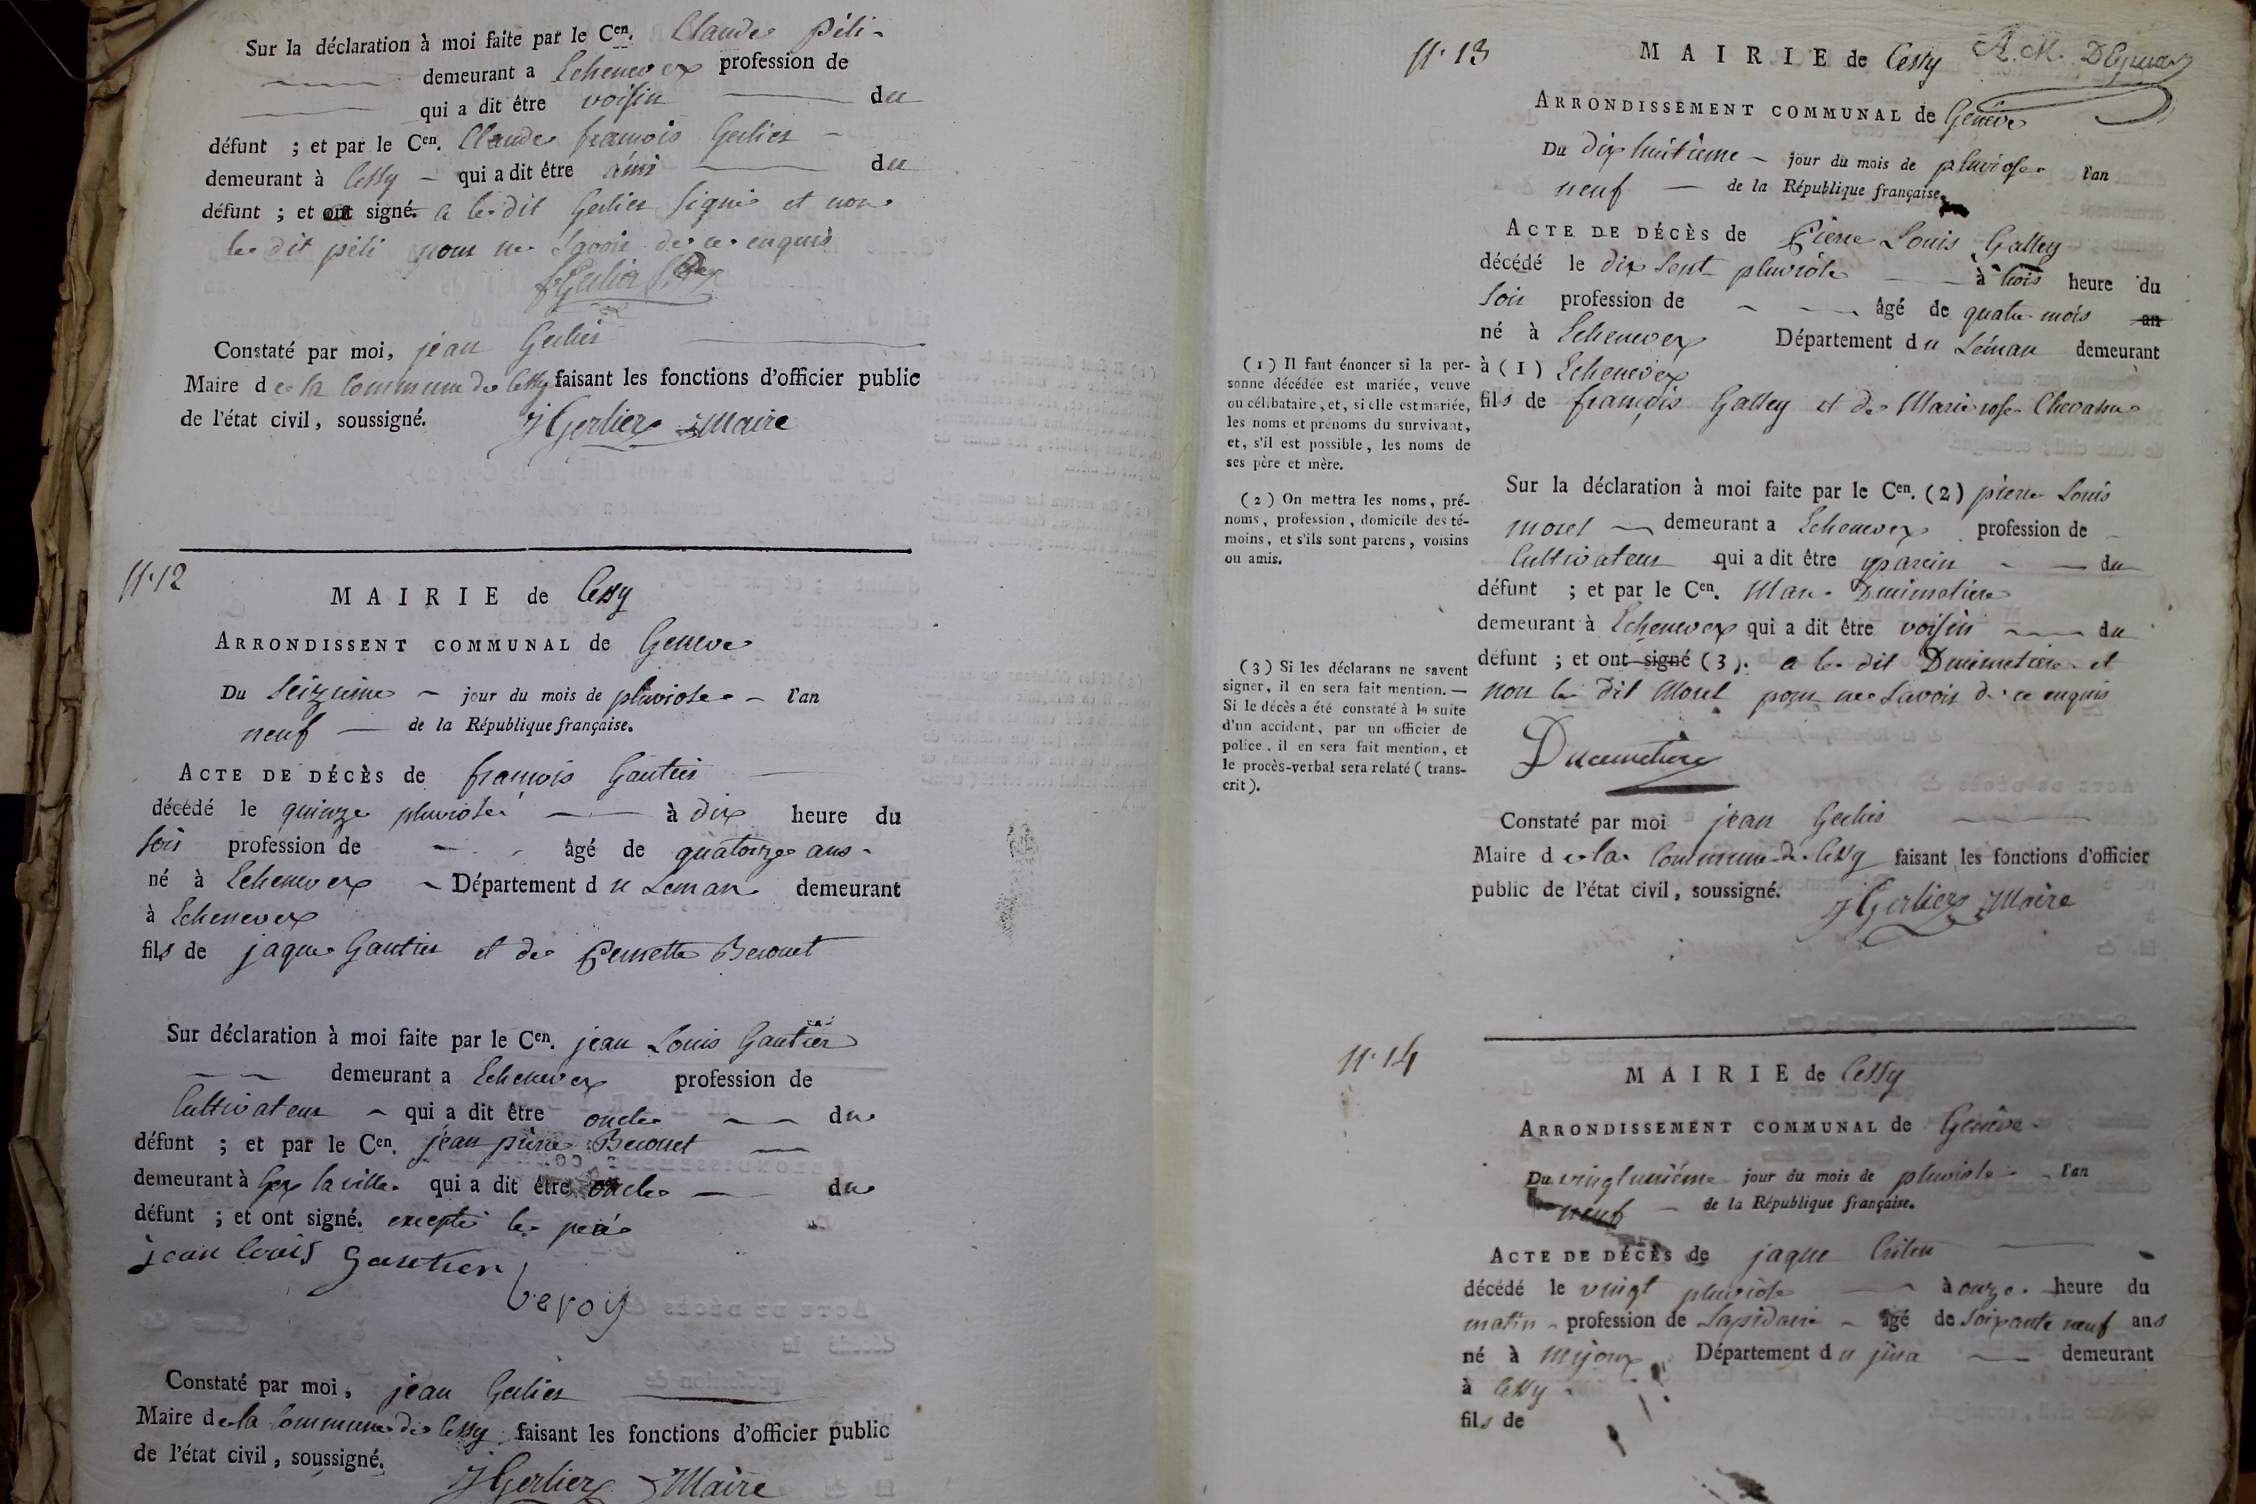 Sur la déclaration à moi faite par le Cen. Claude Péli
demeurant a Echenevex profession de
qui a dit être voisin du
défunt ; et par le Cen. Claude françois Gerlier
demeurant à Cessy qui a dit être ami du
défunt ; et ont signé. a le dit Gerlier signé et non
le dit péli pour ne savoir de ce enquis
Constaté par moi, jean Gerlier
Maire de la Commune de Cessy faisant les fonctions d'officier public
de l'état civil, soussigné. J Gerlier Maire
N. 12
MAIRIE de Cessy
ARRONDISSENT COMMUNAL de Geneve
Du seizieme jour du mois de pluviose l'an
neuf de la République française.
ACTE DE DÉCÈS de françois Gautier
décédé le quinze pluviose à dix heure du
soir profession de âgé de quatorze ans
né à Echenevex Département du Leman demeurant
à Echenevex
fils de jaque Gautier et de Pernette Beronet
Sur déclaration à moi faite par le Cen. jean Louis Gautier
demeurant a Echenevex profession de
Cultivateur qui a dit être oncle du
défunt ; et par le Cen. jean pierre Beronet
demeurant à Gex la ville qui a dit être oncle du
défunt ; et ont signé. excepté le
jean louis Gautier
Constaté par moi, jean Gerlier
Maire de la Commune de Cessy faisant les fonctions d'officier public
de l'état civil, soussigné.
J Gerlier Maire
N. 13
MAIRIE de Cessy A. M.
ARRONDISSEMENT COMMUNAL de Genève
Du dix huitieme jour du mois de pluviose l'an
neuf de la République française.
ACTE DE DÉCÈS de Pierre Louis Galley
décédé le dix sept pluviose à trois heure du
soir profession de âgé de quatre mois an
né à Echenevex Département du Léman demeurant
à (1) Echenevex
fils de françois Galley et de Marie rose Chevassu
(1) Il faut énoncer si la per-
sonne décédée est mariée, veuve
ou célibataire, et, si elle est mariée,
les noms et prénoms du survivant,
et, s'il est possible, les noms de
ses père et mère.
(2) On mettra les noms, pré-
noms, profession, domicile des té-
moins, et s'ils sont parens, voisins
ou amis.
(3) Si les déclarans ne savent
signer, il en sera fait mention. —
Si le décès a été constaté à la suite
d'un accident, par un officier de
police, il en sera fait mention, et
le procès-verbal sera relaté (trans-
crit).
Sur la déclaration à moi faite par le Cen. (2) pierre Louis
morel demeurant a Echenevex profession de
Cultivateur qui a dit être parein du
défunt ; et par le Cen. Marc Duimetiere
demeurant à Echenevex qui a dit être voisin du
défunt ; et ont signé (3). a le dit Duimetiere et
non le dit Morel pour ne savoir de ce enquis
Ducimetiere
Constaté par moi jean Gerlier
Maire de la Commune de Cessy faisant les fonctions d'officier
public de l'état civil, soussigné.
J Gerlier Maire
N. 14
MAIRIE de Cessy
ARRONDISSEMENT COMMUNAL de Genève
Du vingtunième jour du mois de pluviose l'an
neuf de la République française.
ACTE DE DÉCÈS de jaque
décédé le vingt pluviose à onze heure du
matin profession de Lapidaire âgé de soixante neuf ans
né à mijoux Département du jura demeurant
à Cessy
fils de